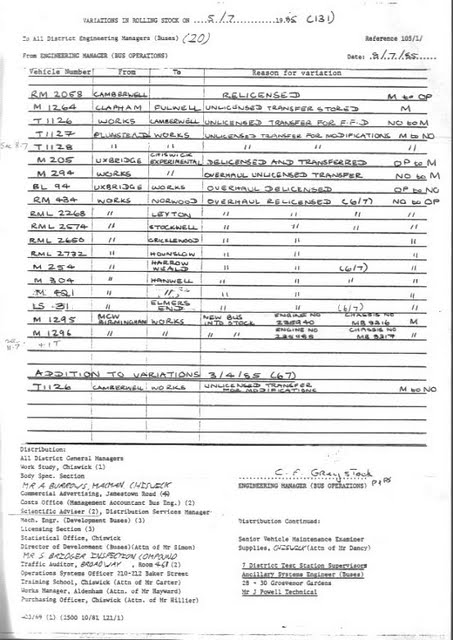 VARIATIONS IN ROLLING STOCK ON 5/7 1985 (131)
To All District Engineering Managers (Buses) (20) Reference 105/1/
From ENGINEERING MANAGER (BUS OPERATIONS) Date: 9/7/85
Vehicle Number From To Reason for variation
RM 2058 CAMBERWELL RELICENSED M to OP
M 1264 CLAPHAM FULWELL UNLICENSED TRANSFER STORED M
T 1126 WORKS CAMBERWELL UNLICENSED TRANSFER FOR F.F.D NO to M
T 1127 PLUMSTEAD WORKS UNLICENSED TRANSFER FOR MODIFICATIONS M to NO
T 1128 " " " " " "
M 205 UXBRIDGE CHISWICK EXPERIMENTAL DELICENSED AND TRANSFERRED OP to M
M 294 WORKS " OVERHAUL UNLICENSED TRANSFER NO to M
BL 94 UXBRIDGE WORKS OVERHAUL DELICENSED OP to NO
RM 434 WORKS NORWOOD OVERHAUL RELICENSED (6/7) NO to OP
RML 2268 " LEYTON " " " "
RML 2574 " STOCKWELL " " " "
RML 2650 " CRICKLEWOOD " " " "
RML 2732 " HOUNSLOW " " " "
M 254 " HARROW WEALD " " (6/7) "
M 304 " HANWELL " " " "
M 421 " " " " " "
LS 31 " ELMERS END " " (6/7) "
M 1295 MCW BIRMINGHAM WORKS NEW BUS INTO STOCK ENGINE NO CHASSIS NO MB 9316 M
M 1296 " " " " ENGINE NO CHASSIS NO MB 9317 "
ADDITION TO VARIATIONS 3/4/85 (67)
T 1126 CAMBERWELL WORKS UNLICENSED TRANSFER FOR MODIFICATIONS M to NO
Distribution:
All District General Managers
Work Study, Chiswick (1)
Body Spec. Section
MR A BURROWS, CHISWICK
Commercial Advertising, Jamestown Road
Costs Office (Management Accountant Bus Eng.) (2)
Scientific Adviser (2), Distribution Services Manager
Mech. Engr. (Development Buses) (3)
Licensing Section (3)
Statistical Office, Chiswick
Director of Development (Buses)(Attn of Mr Simon)
MR S BRIDGER INSPECTION COMPOUND
Traffic Auditor, BROADWAY, Room
Operations Systems Officer 710-212 Baker Street
Training School, Chiswick (Attn of Mr Carter)
Works Manager, Aldenham (Attn. of Mr Hayward)
Purchasing Officer, Chiswick (Attn. of Mr Hillier)
C.F. Graystock
ENGINEERING MANAGER (BUS OPERATIONS)
Distribution Continued:
Senior Vehicle Maintenance Examiner
Supplies, CHISWICK (Attn of Mr Dancy)
7 District Test Station Supervisors
Ancillary Systems Engineer (Buses)
28 - 30 Grosvenor Gardens
Mr J Powell Technical
(1) (2500 10/81 121/1)